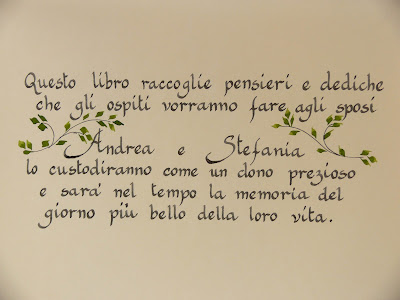 Questo libro raccoglie pensieri e dediche
che gli ospiti vorranno fare agli sposi
Andrea e Stefania
lo custodiranno come un dono prezioso
e sara' nel tempo la memoria del
giorno più bello della loro vita.